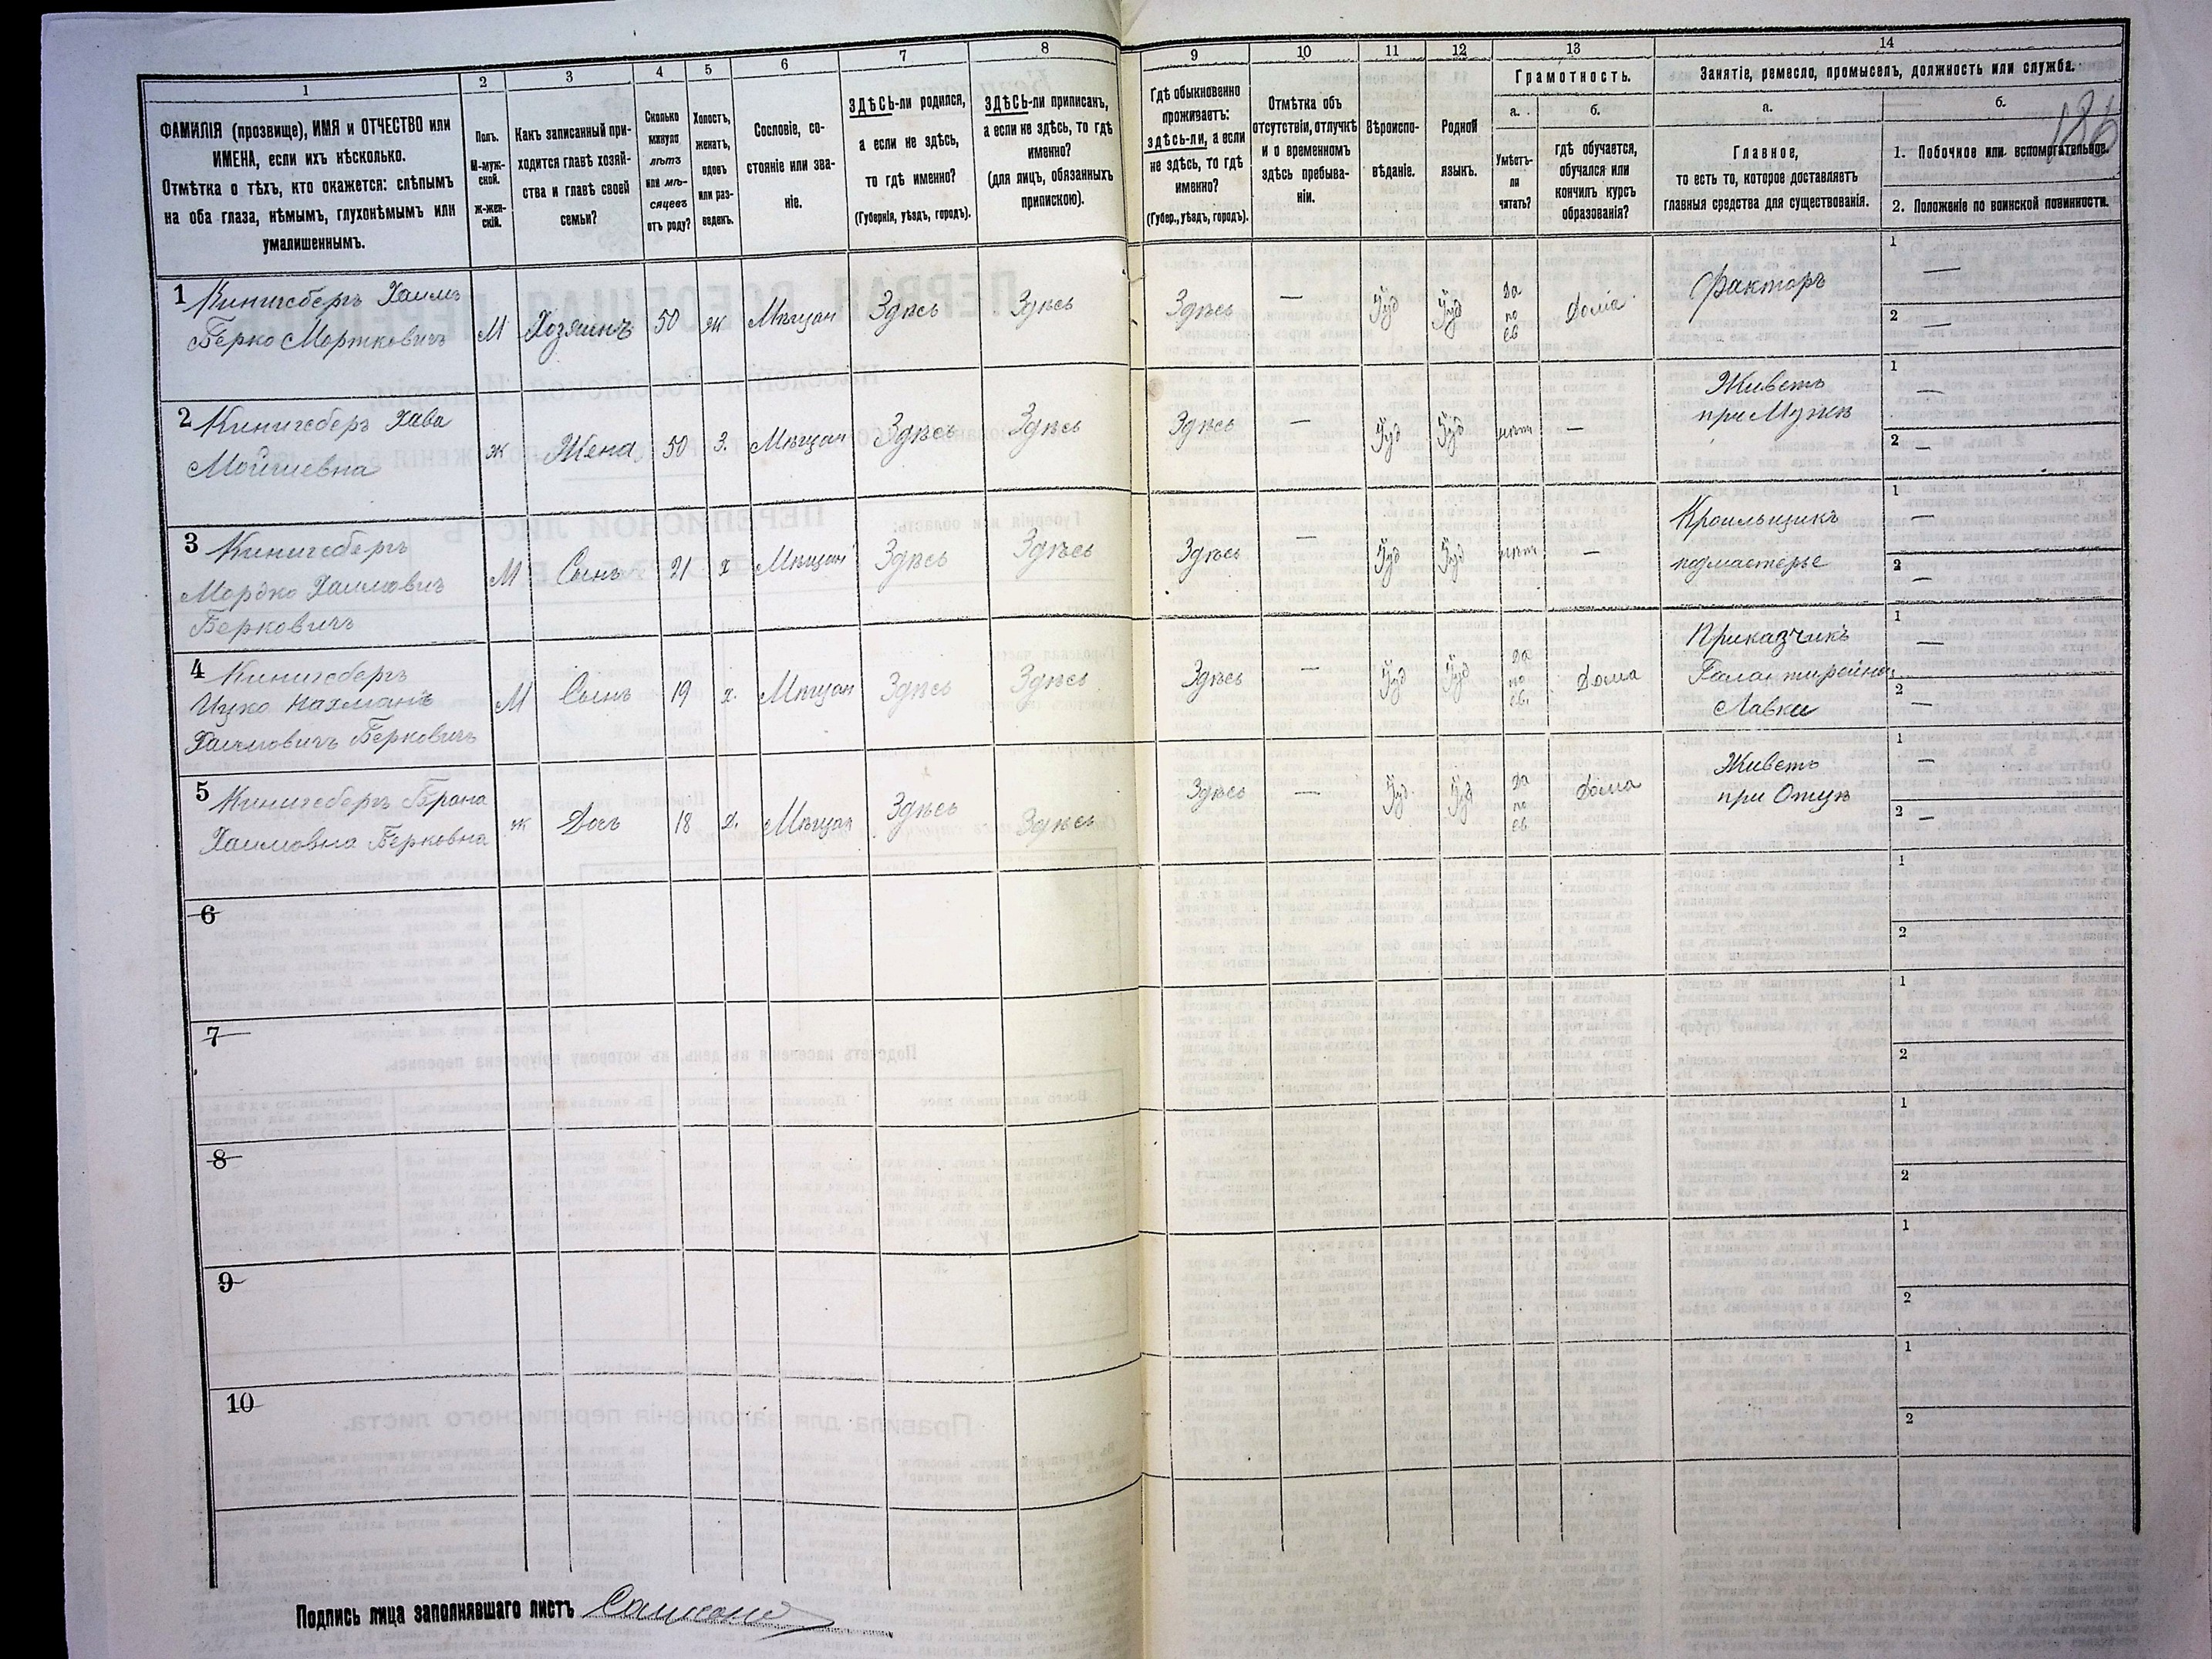 1
2
3
4
5
6
7
8
9
10
11
12
13
14
ФАМИЛІЯ (прозвище), ИМЯ и ОТЧЕСТВО или
ИМЕНА, если ихъ нѣсколько.
Отмѣтка о тѣхъ, кто окажется: слѣпымъ
на оба глаза, нѣмымъ, глухонѣмымъ или
умалишеннымъ.
Полъ.
М-муж-
ской.
ж-жен-
скій.
Какъ записанный при-
ходится главѣ хозяй-
ства и главѣ своей
семьи?
Сколько
минуло
лѣтъ
или мѣ-
сяцевъ
отъ роду?
Холостъ,
женатъ,
вдовъ
или раз-
веденъ.
Сословіе, со-
стояніе или зва-
ніе.
ЗДѢСЬ-ли родился,
а если не здѣсь,
то гдѣ именно?
(Губернія, уѣздъ, городъ).
ЗДѢСЬ-ли приписанъ,
а если не здѣсь, то гдѣ
именно?
(для лицъ, обязанныхъ
припискою).
Гдѣ обыкновенно
проживаетъ:
здѣсь-ли, а если
не здѣсь, то гдѣ
именно?
(Губер., уѣздъ, городъ).
Отмѣтка объ
отсутствіи, отлучкѣ
и о временномъ
здѣсь пребыва-
ніи.
Вѣроиспо-
вѣданіе.
Родной
языкъ.
Грамотность.
а.
Умѣетъ-
ли
читать?
б.
гдѣ обучается,
обучался или
кончилъ курсъ
образованія?
Занятіе, ремесло, промыселъ, должность или служба.
а.
Главное,
то есть то, которое доставляетъ
главныя средства для существованія.
б.
186
1. Побочное или вспомогательное.
2. Положеніе по воинской повинности.
1 Кинигсбергъ Хаимъ
Берко Мортковичъ
М Хозяинъ 50 ж Мѣщан Здѣсь Здѣсь
Здѣсь — Іуд Іуд
да
по
ев
Дома
Факторъ
1 —
2 —
2 Кинигсберъ Хава
Мойшевна
ж Жена 50 З. Мѣщан Здѣсь Здѣсь
Здѣсь — Іуд Іуд нѣтъ —
Живетъ
при Мужѣ
1 —
2 —
3 Кинигсбергъ
Мордко Хаимович
Берковичъ
М Сынъ 21 х Мѣщан Здѣсь Здѣсь
Здѣсь — Іуд Іуд нѣтъ —
Кроильщикъ
подмастерье
1 —
2 —
4 Кинигсбергъ
Ицко Нахманъ
Хаимовичъ Берковичъ
М Сынъ 19 х. Мѣщан Здѣсь Здѣсь
Здѣсь — Іуд Іуд
да
по
ев.
Дома
Приказчикъ
Галантирейной
Лавки
1 —
2 —
5 Кинигсбергъ Брана
Хаимовна Берковна
ж Дочь 18 х. Мѣщан Здѣсь Здѣсь
Здѣсь — Іуд Іуд
да
по
ев
Дома
Живетъ
при Отцѣ
1 —
2 —
6
1
2
7
1
2
8
1
2
9
1
2
10
1
2
Подпись лица заполнявшаго листъ